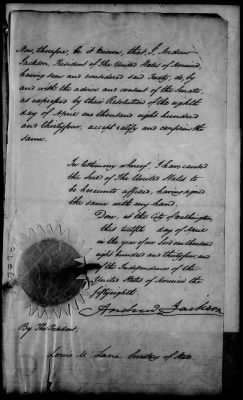 Now, therefore, be it known, that I, Andrew
Jackson, President of The United States of America,
having seen and considered said Treaty, do, by
and with the advice and consent of the Senate,
as expressed by their Resolution of the eighth
day of April one thousand eight hundred
and thirty four, accept ratify and confirm the
same.
In testimony whereof, I have caused
the Seal of The United States to
be hereunto affixed, having signed
the same with my hand.
Done, at the City of Washington,
this twelfth day of April
in the year of our Lord one thousand
eight hundred and thirty four, and
of the Independence of the
United States of America the
fifty eighth.
Andrew Jackson
By The President,
Louis M Lane Secretary of State